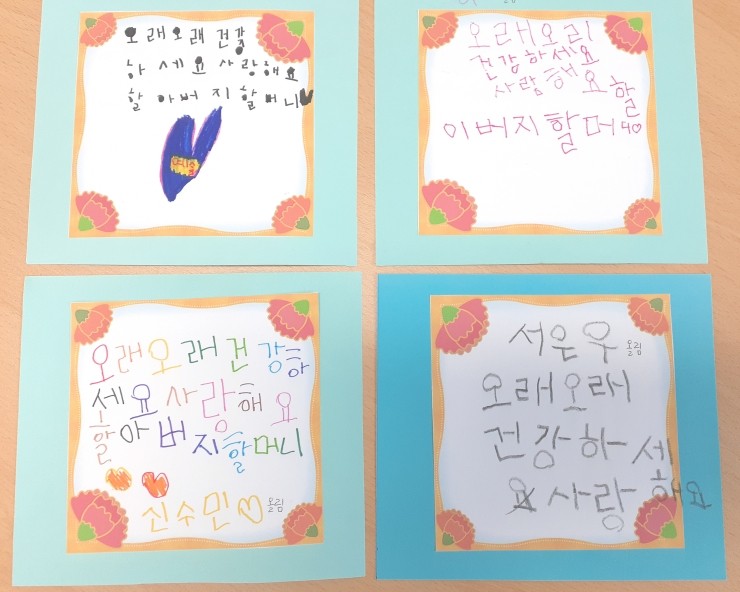 오래오래 건강
하세요 사랑해요
할아버지할머니♥
오래오리
건강하세요
사랑해요할
이버지할머니♡
오래오래건강하
세요사랑해요
할아버지할머니
신수민♡ 올림
서은우 올림
오래오래
건강하세
요사랑해요